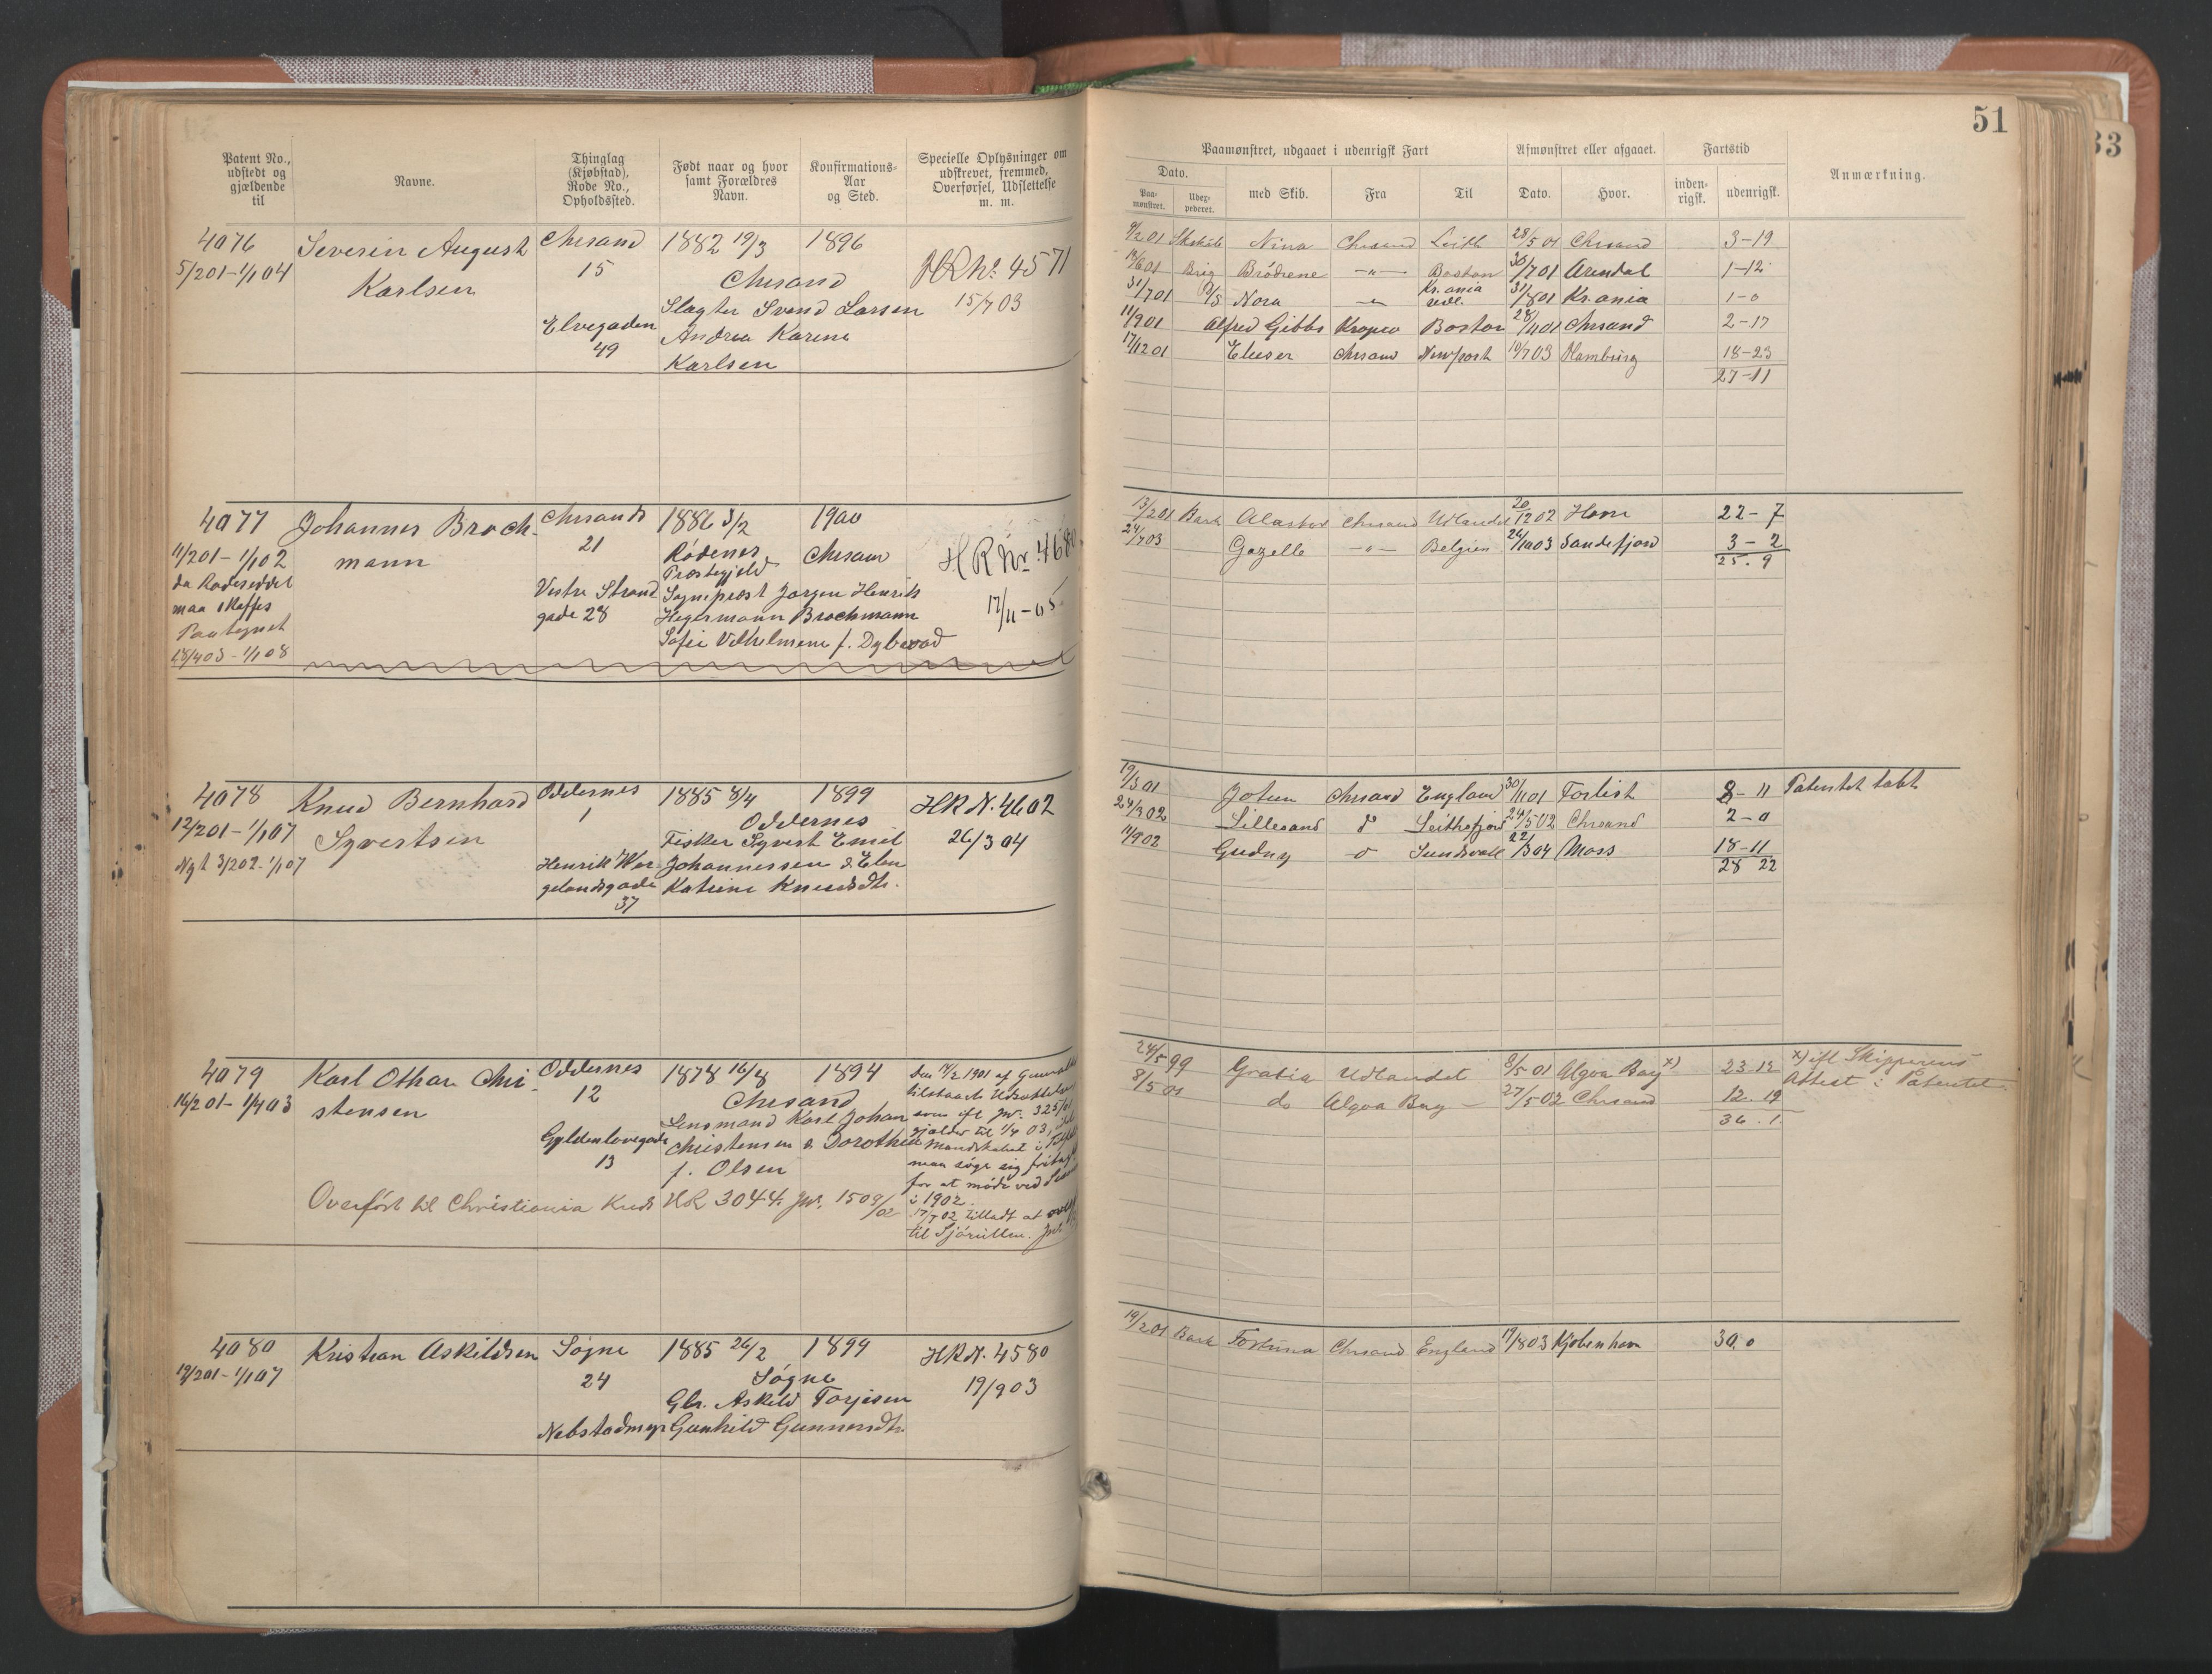 51
33
Patent No., udstedt og gjældende til
Navne.
Thinglag (Kjøbstad), Rode No., Opholdssted.
Født naar og hvor samt Forældres Navn.
Konfirmations-Aar og Sted.
Specielle Oplysninger om udskrevet, fremmed, Overførsel, Udslettelse m. m.
Paamønstret, udgaaet i udenrigsk Fart
Afmønstret eller afgaaet.
Fartstid
Anmærkning.
Dato.
Paa-mønstret.
Udex-pederet.
med Skib.
Fra
Til
Dato.
Hvor.
inden-rigsk.
udenrigsk.
4076
5/2 01 - 1/1 04
Severin August
Karlsen
Chrsand
15
Elvegaden
49
1882 19/3
1896
Chrsand
Slagter Svend Larsen
Andrea Karine
Karlsen
HR No. 4571
15/7 03
9/2 01 Skskib Nina Chrsand Leith 28/5 01 Chrsand 3-19
Brig Brödrene -"- Boston 30/7 01 Arendal 1-12
31/7 01 Nora -"- Kr.ania 31/8 01 Kr.ania 1-0
11/9 01 Alfred Gibbs Boston 28/11 01 Chrsand 2-17
17/12 01 Elieser Chrsand Newport 10/7 03 Hamburg 18-23
27-11
4077
11/2 01 - 1/1 02
da Rodeseddel
maa skaffes
Paategnet
18/4 03 - 1/1 08
Johannes Broch-
mann
Chrsands
21
Vestre Strand
gade 28
1886 3/2
1900
Rödenes
Præstegjeld
Chrsand
Sogneprest Jørgen Henrik
Hegermann Brochmann
Sofie Vilhelmine f. Dybwad
HR Nr. 4680
17/11-05
13/2 01 Bark Alastor Chrsand Udlandet 20/12 02 Horn 22-7
24/7 03 Gazelle -"- Belgien 24/10 03 Sandefjord 3-2
25.9
4078
12/2 01 - 1/1 07
Nyt 3/2 02 - 1/1 07
Knud Bernhard
Syvertsen
Oddernes
1
Henrik Wer
gelandsgade
37
1885 8/4
1899
Oddernes
Fisker Syvert Emil
Johannessen & Elen
Katrine Knudsdtr.
HR N. 4602
26/3 04
19/3 01 Jotun Chrsand England 30/11 01 Forlist 8-11 Patentet tabt
24/3 02 Lillesand do Leithsfjord 24/5 02 Chrsand 2-0
11/9 02 Gudny do Sundsvall 22/3 04 Moss 18-11
28 22
4079
16/2 01 - 1/4 03
Karl Othar Chri-
stensen
Oddernes
12
Gyldenlovegade
13
1878 16/8
1894
Chrsand
Lensmand Karl Johan
Christensen & Dorothea
f. Olsen
den 14/2 1901 af General
tilstaaet Udsættelse
som ifl Jnr. 325/01
gjælder til 1/4 03,
Mandskabet i
maa søge sig fritaget
for at møde ved
i 1902
17/7 02 tilladt at
til Sjörullen. Jnr
Overfört til Christiania Kreds HR 3044. Jnr. 1509/02
24/5 99 Gratia Udlandet 8/5 01 Algoa Bay x) 23.12 x) ifl Skipperens
Attest i Patentet.
8/5 01 do Algoa Bay - 27/5 02 Chrsand 12.19
36.1
4080
19/2 01 - 1/1 07
Kristian Askildsen
Søgne
24
Nebstadmyr
1885 26/2
1899
Søgne
Gbr. Askild Torjesen
Gunhild Gunnersdtr
HR N. 4580
19/9 03
19/2 01 Bark Fortuna Chrsand England 19/8 03 Kjøbenhavn 30.0